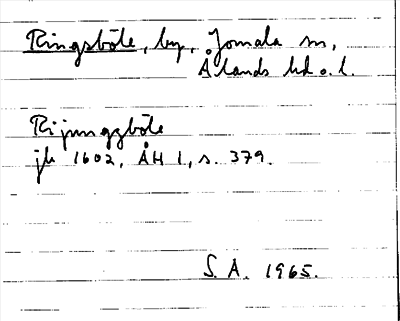 Ringsböle, by, Jomala sn,
Ålands hd o. l.
Rijunggböle
jb 1602, ÅH 1, s. 379.
S. Å. 1965.